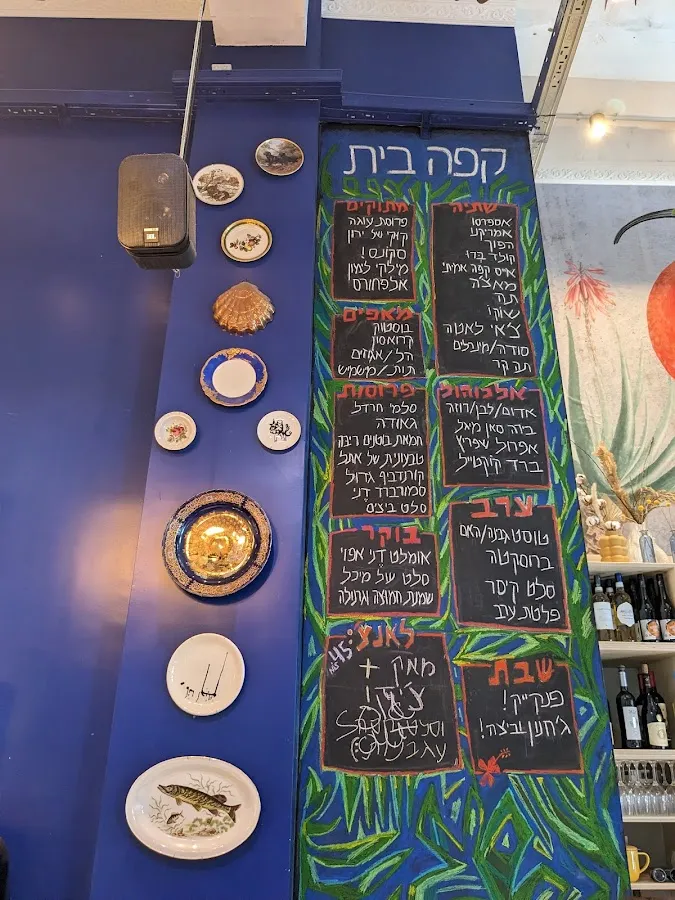 קפה בית
שתיה
אספרסו
אמריקנו
הפוך
קולד ברו
אייס קפה אמיתי
מאצ'ה
תה
שוקו
צ'אי לאטה
סודה/מינרלים
תה קר
מתוקים
פרוסת עוגה
קוקי של ירון
סקונס!
מילקי לימון
אלפחורס
מאפים
בוסטוק
קרואסון
הל/אגוזים
תות/משמש
אלכוהול
אדום/לבן/רוזה
בירה סאן מיגל
אפרול שפריץ
ברד קוקטייל
פרוסות
סלמי חרדל
גאודה
חמאת בוטנים ריבה
טבעונית של אתל
קורנדביף גדול
סמורברד דני
סלט ביצים
ערב
טוסט גבינה/האם
ברוסקטה
סלט קיסר
פלטת ערב
בוקר
אומלט דני אפוי
סלט של מיכל
שמנת חמוצה וגרנולה
לאנץ':
45
מאק
+
צ'יפס!
וסלט
שבת
פנקייק!
ג'חנון וביצה!
JBL